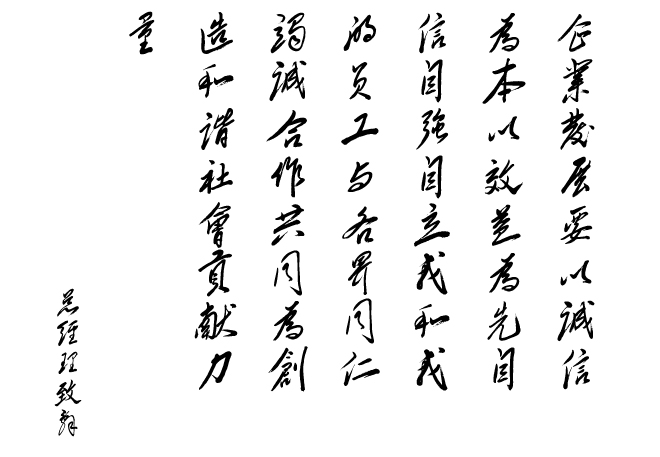 企業發展要以誠信
為本以效益為先自
信自強自立我和我
的员工与各界同仁
竭誠合作共同為創
造和谐社會貢献力
量
总经理致辞